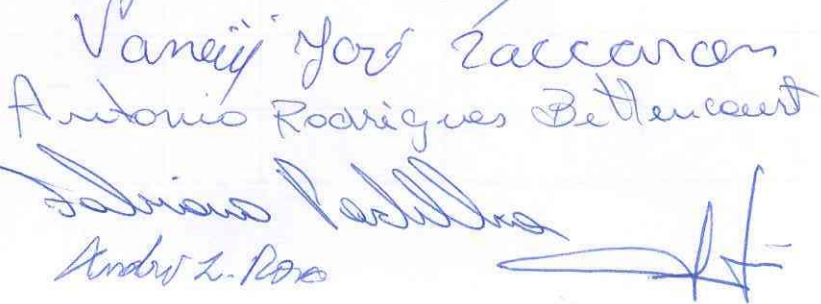 José Zaccaron
Antonio Rodrigues Bettencourt
Fabiano Padilha
André L. Rosa